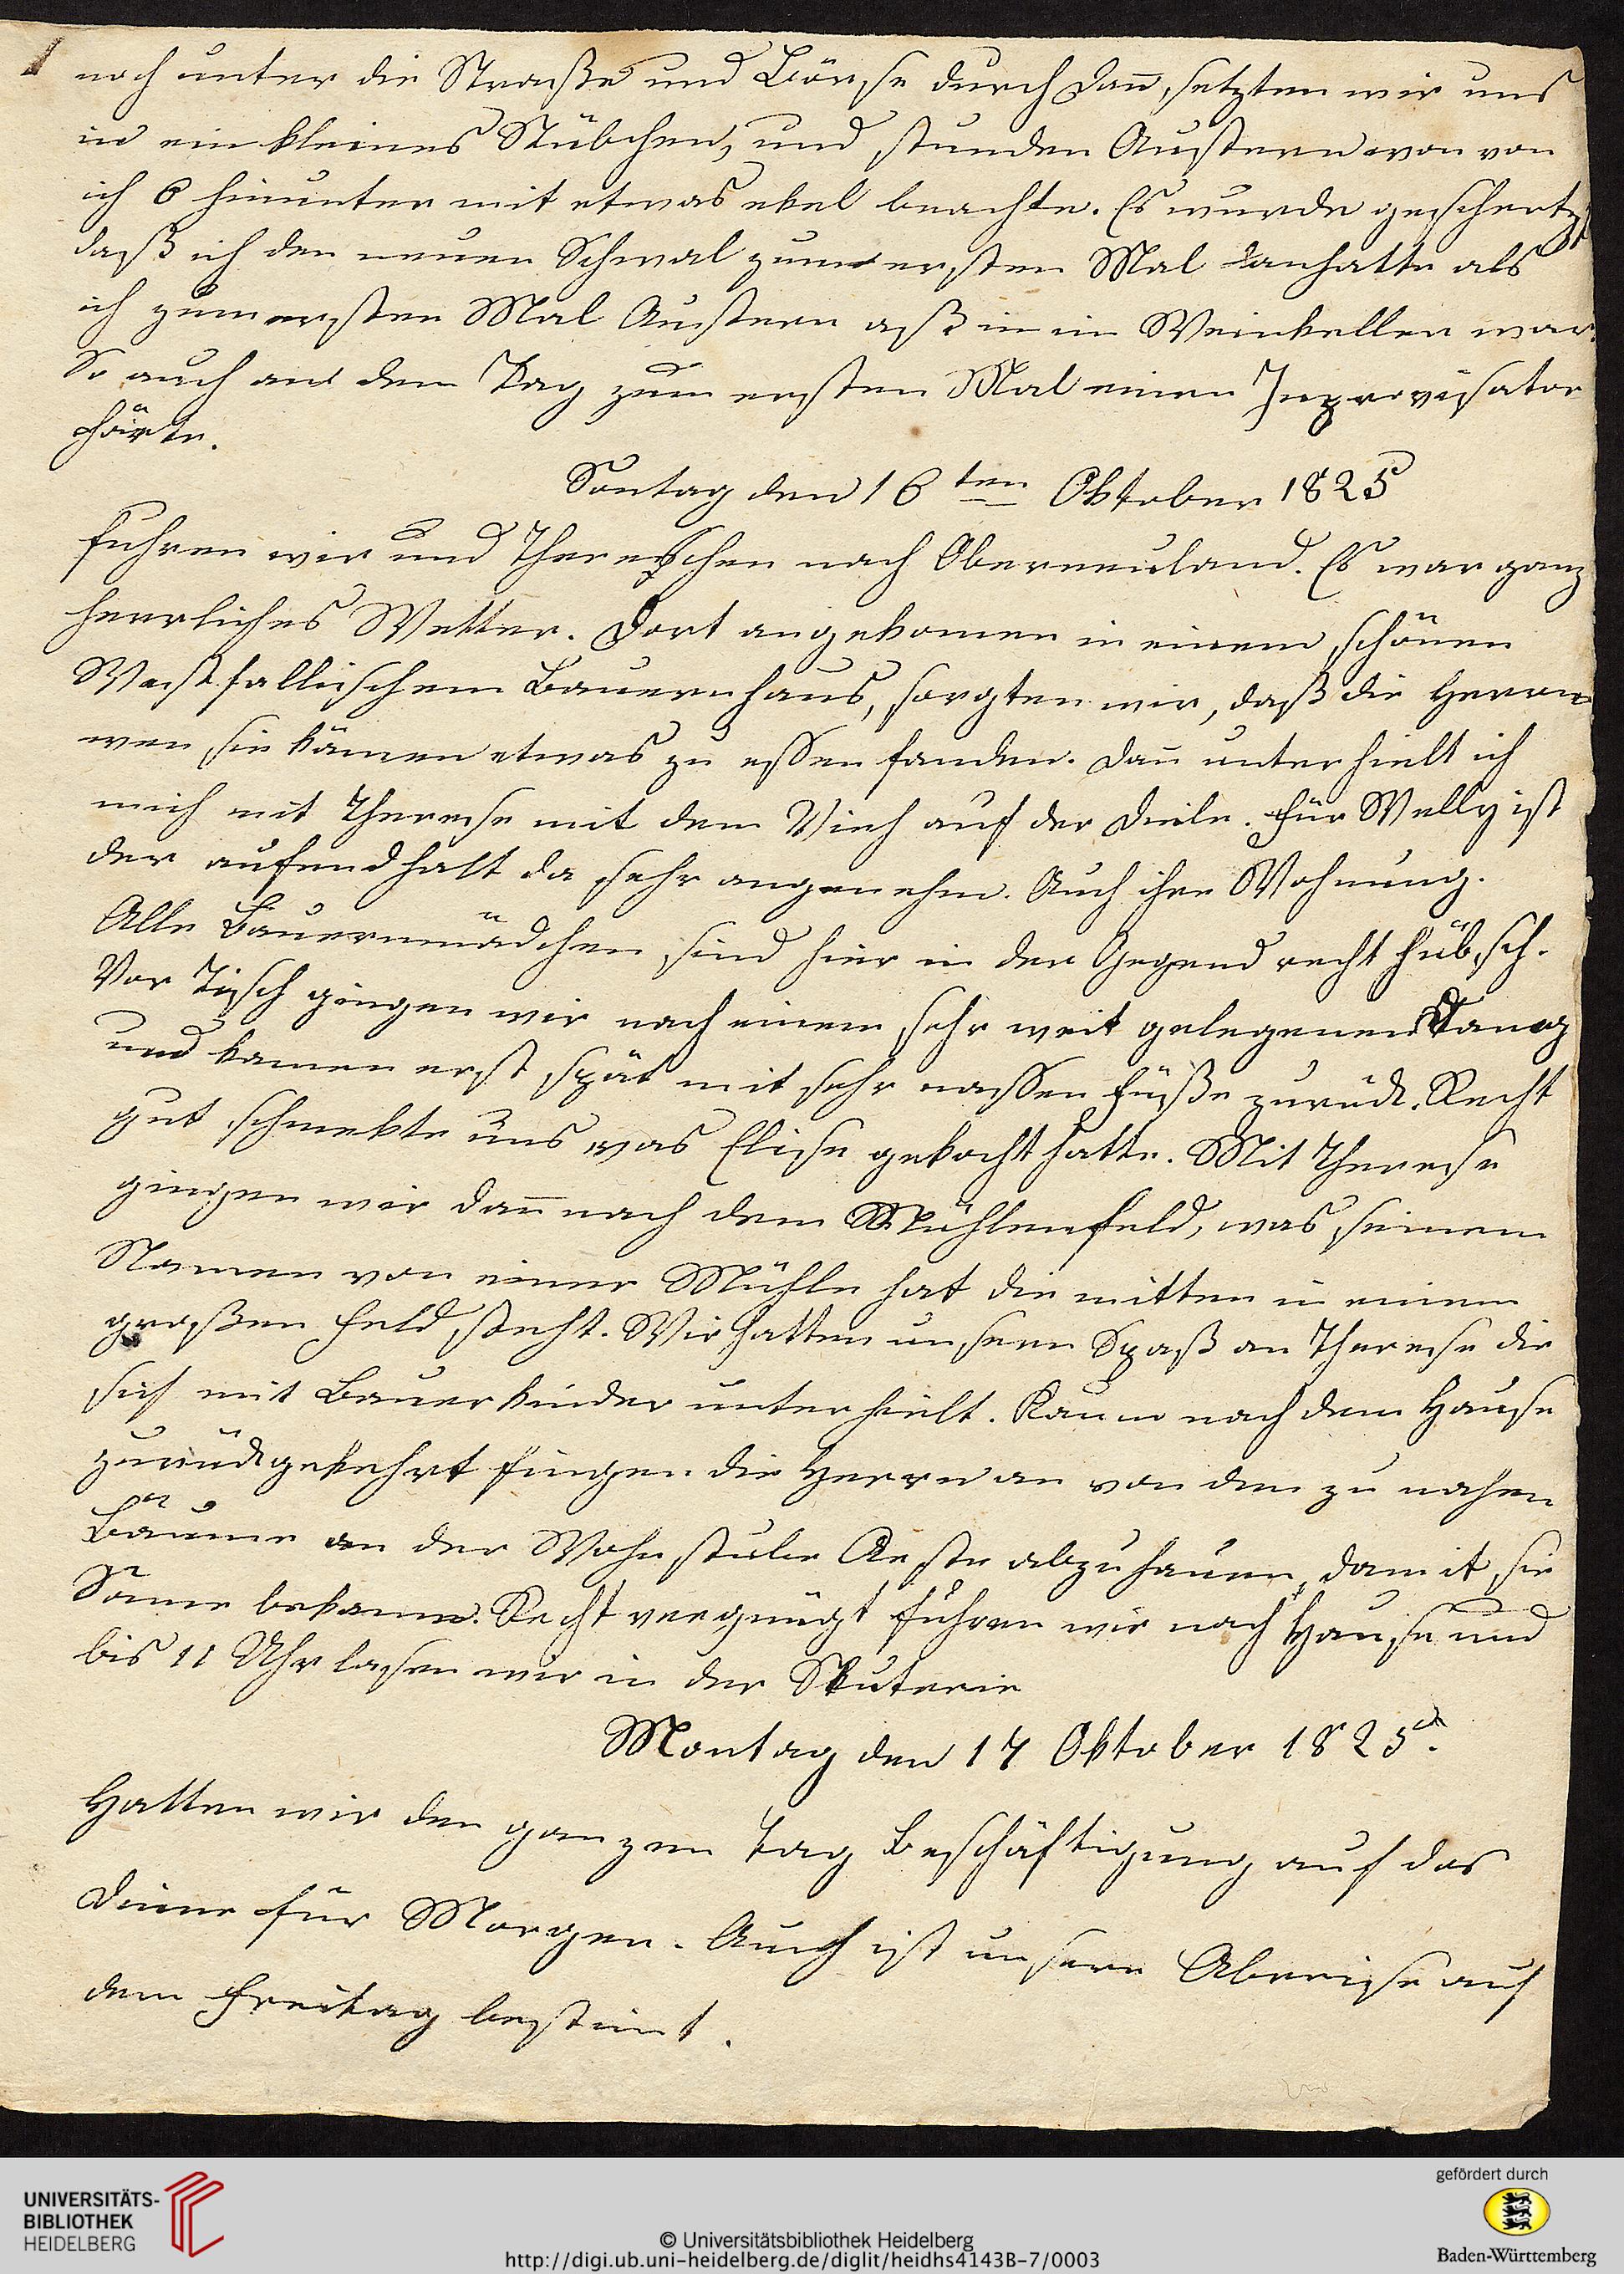 noch unter die Straße und Börse durch dañ, setzten wir uns
in ein kleines Stübchen, und Austern wo von
ich 6 hinunter mit etwas ekel brachte. Es wurde geschertzt
daß ich den neuen Schwal zum ersten Mal anhatte als
ich zum ersten Mal Austern aß in im Weinkeller war.
So auch an dem Tag zum ersten Mal einen Improvisator
hörte.
Sontag den 16ten Oktober 1825
fuhren wir und Thereschen nach Oberneuland. Es war ganz
herrliches Wetter. Dort angekomen in einem schönen
Westfallischem Bauernhaus, sorgten wir, daß die Herrn
wen sie kämen etwas zu essen fanden. Dañ unterhielt ich
mich mit Therese mit dem Vieh auf der Diele. Für Welly ist
der aufendhalt da sehr angenehm. Auch ihre Wohnung.
Alle Bauernmädchen sind hier in der Gegend recht hübsch.
Vor Tisch gingen wir nach einem sehr weit gelegenen
und kamen erst spät mit sehr nassen Füße zurück. Recht
gut schmekte uns was Elise gekocht hatte. Mit Therese
gingen wir dañ nach dem Mühlenfeld, was seinen
Namen von einer Mühle hat die mitten in einem
großen Feld steht. Wir hatten unsern Spaß an Therese die
sich mit Bauerkinder unterhielt. Kaum nach dem Hause
zurückgekehrt fingen die Herrn an von den zu nahen
Bäume an der Wohnstube Aeste abzuhauen, damit sie
Sonne bekamen. Recht vergnügt fuhren wir nach Hause und
bis 11 Uhr lasen wir in der
Montag den 17 Oktober 1825.
Hatten wir den ganzen Tag Beschäftigung auf das
Dinne für Morgen. Auch ist unsere Abreise auf
dem Freitag bestimt.
UNIVERSITÄTS-
BIBLIOTHEK
HEIDELBERG
© Universitätsbibliothek Heidelberg
http://digi.ub.uni-heidelberg.de/diglit/heidhs4143B-7/0003
gefördert durch
Baden-Württemberg